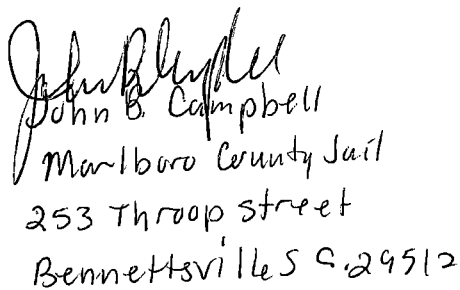 John B. Campbell
Marlboro County Jail
253 Throop Street
Bennettsville S C. 29512